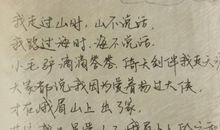 我走过山时，山不说话，
我路过海时，海不说话，
小毛驴滴滴答答，倚天剑伴我走天涯
大家都说我因为爱着杨过大侠，
才在峨眉山上出了家，